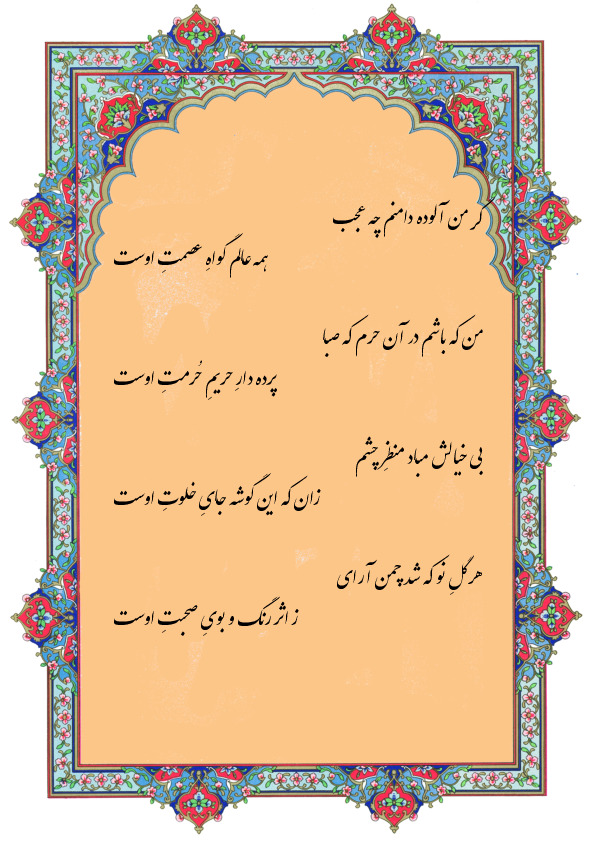 گر من آلوده دامنم چه عجب
همه عالم گواهِ عصمتِ اوست
من که باشم در آن حرم که صبا
پرده دارِ حریمِ حُرمتِ اوست
بی خیالش مباد منظرِ چشم
زان که این گوشه جایِ خلوتِ اوست
هر گلِ نو که شد چمن آرای
ز اثر رنگ و بویِ صحبتِ اوست